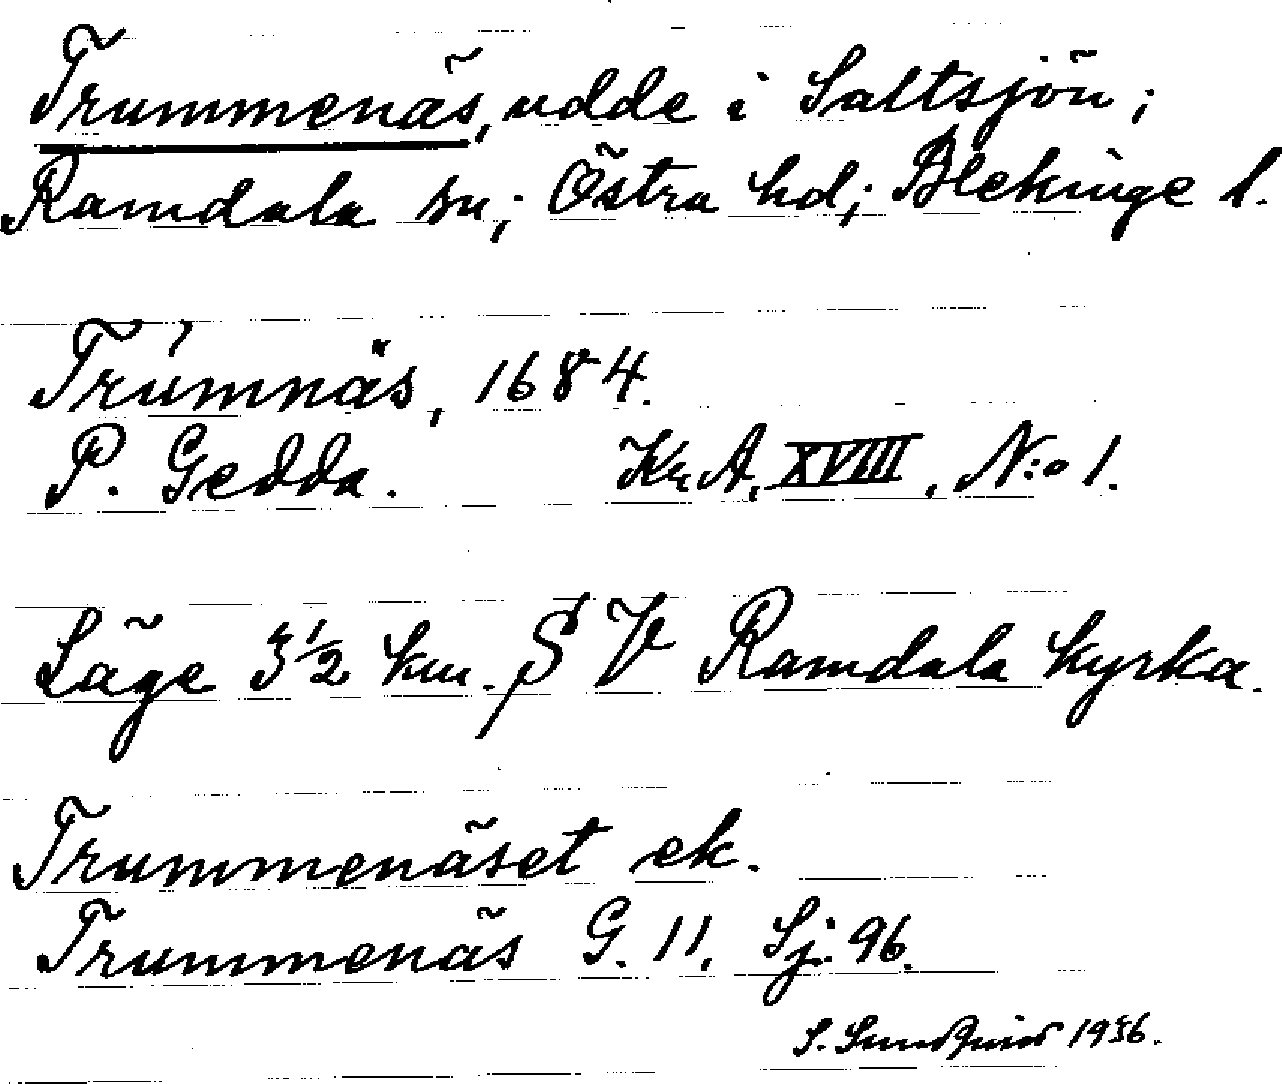 Trummenäs, udde i Saltsjön;
Ramdala sn; Östra hd; Blekinge l.
Trúmnäs, 1684.
P. Gedda. Kr. A, XVIII, N:o 1.
Läge 3½ km. SV Ramdala kyrka.
Trummenäset ek.
Trummenäs G. 11, Sj. 96.
S. 1936.